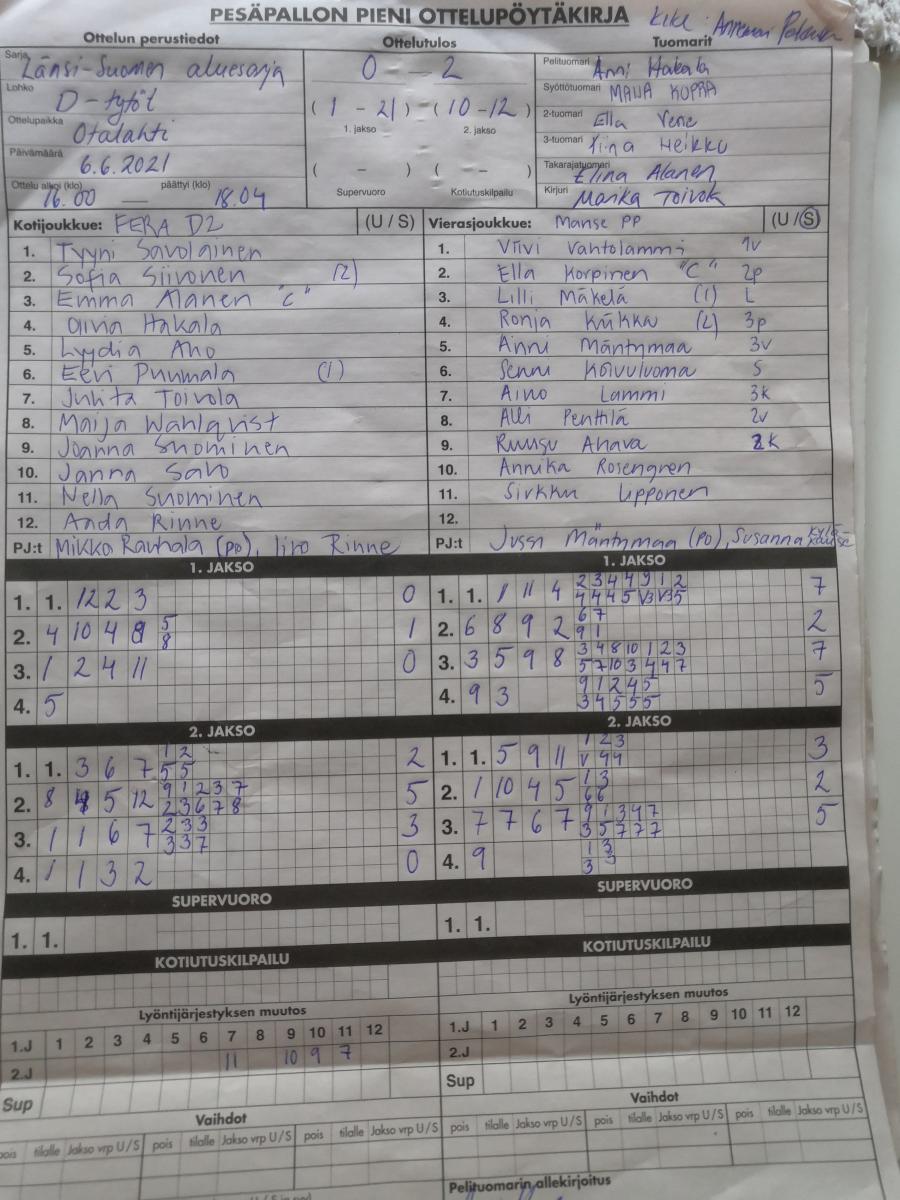 PESÄPALLON PIENI OTTELUPÖYTÄKIRJA
Ottelun perustiedot
Sarja Länsi-Suomen aluesarja
Lohko D-tytöt
Ottelupaikka Otalahti
Päivämäärä 6.6.2021
Ottelu alkoi (klo) 16.00 — päättyi (klo) 18.04
Ottelutulos
0 - 2
( 1 - 21 ) ( 10 - 12 )
1. jakso 2. jakso
( - ) ( - )
Supervuoro Kotiutuskilpailu
Tuomarit
Pelituomari Anni Hakala
Syöttötuomari MAIJA KOPRA
2-tuomari Ella Vene
3-tuomari Tiina Heikku
Takarajatuomari Elina Alanen
Kirjuri Marika Toivola
Kotijoukkue: FERA D2 (U / S)
1. Tyyni Savolainen
2. Sofia Siivonen (2)
3. Emma Alanen "C"
4. Olivia Hakala
5. Lyydia Aho
6. Eevi Puumala (1)
7. Julita Toivola
8. Maija Wahlqvist
9. Joanna Suominen
10. Janna Salo
11. Nella Suominen
12. Anda Rinne
PJ:t Mikko Rauhala (PO), Iiro Rinne
Vierasjoukkue: Manse PP (U / S)
1. Viivi Vahtolammi 1v
2. Ella Korpinen "C" 2p
3. Lilli Mäkelä (1) L
4. Ronja Kukku (2) 3p
5. Anni Mäntymaa 3v
6. Senni Koivuluoma S
7. Aino Lammi 3k
8. Alli Penttilä 2v
9. Ruusu Ahava 2k
10. Annika Rosengren
11. Sirkku Lipponen
12.
PJ:t Jussi Mäntymaa (PO), Susanna
1. JAKSO
1. 1. 12 2 3 0
2. 4 10 4 9 5 1
8
3. 1 2 4 11 0
4. 5
1. JAKSO
1. 1. 1 11 4 2 3 4 4 9 1 2 7
4 4 4 5 V3 V3 5
2. 6 8 9 2 6 7 2
9 1
3. 3 5 9 8 3 4 8 10 1 2 3 7
5 7 10 3 4 4 7
4. 9 3 9 1 2 4 5 5
3 4 5 5 5
2. JAKSO
1. 1. 3 6 7 1 2 2
5 5
2. 8 4 5 12 9 1 2 3 7 5
2 3 6 7 8
3. 1 1 6 7 2 3 3 3
3 3 7
4. 1 1 3 2 0
2. JAKSO
1. 1. 5 9 11 1 2 3 3
V 4 4
2. 1 10 4 5 1 3 2
6 6
3. 7 7 6 7 9 1 3 4 7 5
3 5 7 7 7
4. 9 1 3
3 3
SUPERVUORO
1. 1.
SUPERVUORO
1. 1.
KOTIUTUSKILPAILU
KOTIUTUSKILPAILU
Lyöntijärjestyksen muutos
1.J 1 2 3 4 5 6 7 8 9 10 11 12
2.J 11 10 9 7
Sup
Lyöntijärjestyksen muutos
1.J 1 2 3 4 5 6 7 8 9 10 11 12
2.J
Sup
Vaihdot
pois tilalle Jakso vrp U / S pois tilalle Jakso vrp U / S pois tilalle Jakso vrp U / S
Vaihdot
pois tilalle Jakso vrp U / S pois tilalle Jakso vrp U / S pois tilalle Jakso vrp U / S
Pelituomarin allekirjoitus